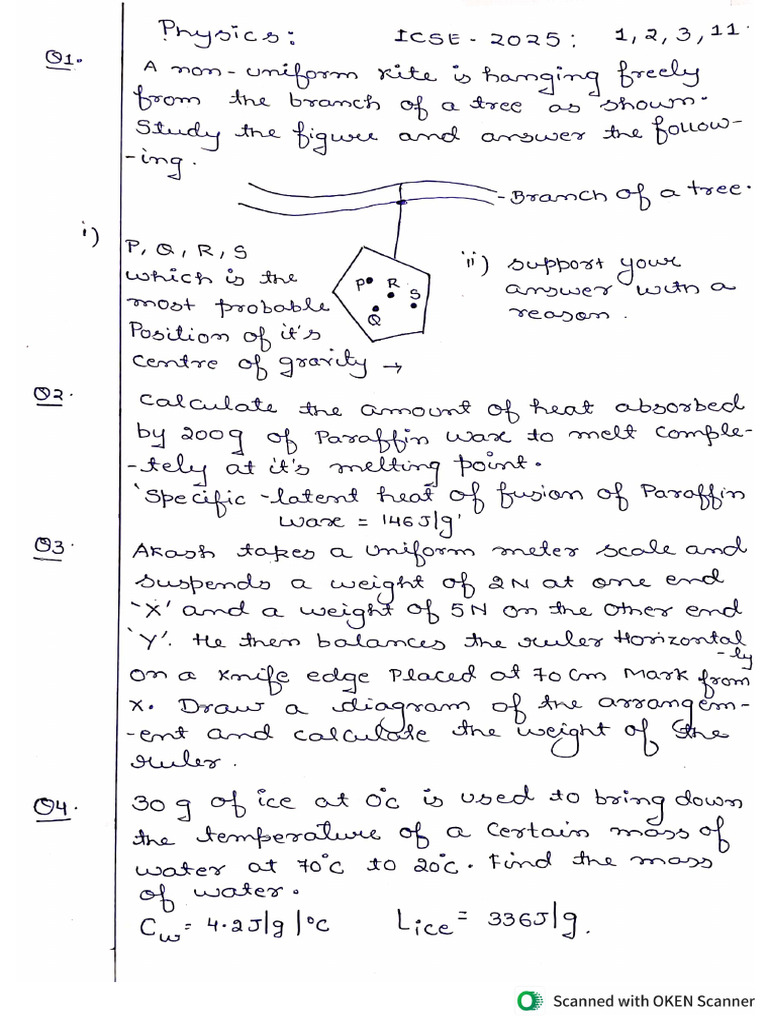 Physics: ICSE - 2025: 1, 2, 3, 11.
Q1. A non-uniform kite is hanging freely
from the branch of a tree as shown.
Study the figure and answer the follow-
-ing.
- Branch of a tree.
i) P, Q, R, S
which is the
most probable
Position of it's
centre of gravity →
P R S
Q
ii) support your
answer with a
reason.
Q2. Calculate the amount of heat absorbed
by 200g of Paraffin wax to melt comple-
-tely at it's melting point.
'Specific -latent heat of fusion of Paraffin
wax = 146J/g'
Q3. Akash takes a uniform meter scale and
suspends a weight of 2N at one end
'X' and a weight of 5N on the other end
'Y'. He then balances the ruler Horizontal
-ly
on a Knife edge Placed at 70cm Mark from
X. Draw a diagram of the arrangem-
-ent and calculate the weight of the
ruler.
Q4. 30 g of ice at 0°c is used to bring down
the temperature of a certain mass of
water at 70°c to 20°c. Find the mass
of water.
Cw = 4.2J/g/°C Lice = 336J/g.
Scanned with OKEN Scanner